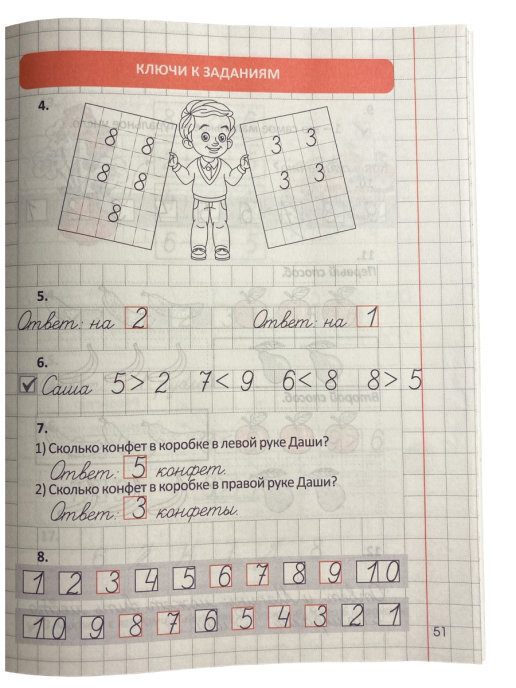 КЛЮЧИ К ЗАДАНИЯМ
4.
8 8
8 8
8
3 3
3 3
5.
Ответ: на 2 Ответ: на 1
6.
Саша 5 > 2 7 < 9 6 < 8 8 > 5
7.
1) Сколько конфет в коробке в левой руке Даши?
Ответ: 5 конфет.
2) Сколько конфет в коробке в правой руке Даши?
Ответ: 3 конфеты.
8.
1 2 3 4 5 6 7 8 9 10
10 9 8 7 6 5 4 3 2 1
51